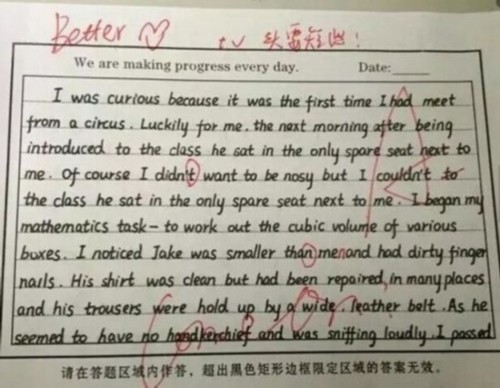 Better
We are making progress every day. Date:
I was curious because it was the first time I had meet
from a circus. Luckily for me. the next morning after being
introduced to the class he sat in the only spare seat next to
me. Of course I didn't want to be nosy but I couldn't to
the class he sat in the only spare seat next to me. I began my
mathematics task- to work out the cubic volume of various
buxes. I noticed Jake was smaller than men and had dirty finger
nails. His shirt was clean but had been repaired, in many places
and his trousers were hold up by a wide. leather belt. As he
seemed to have no handkerchief and was sniffing loudly. I passed
请在答题区域内作答，超出黑色矩形边框限定区域的答案无效。